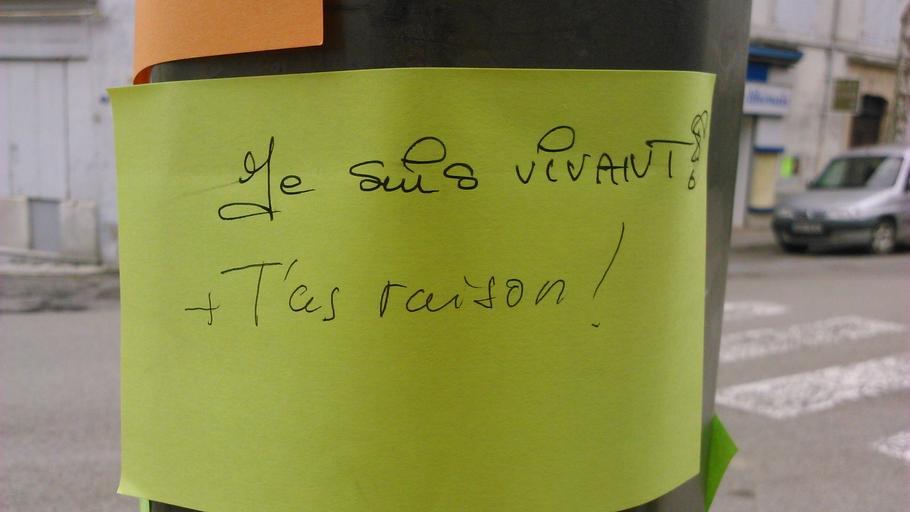 Je suis vivant !
+ T'as raison !